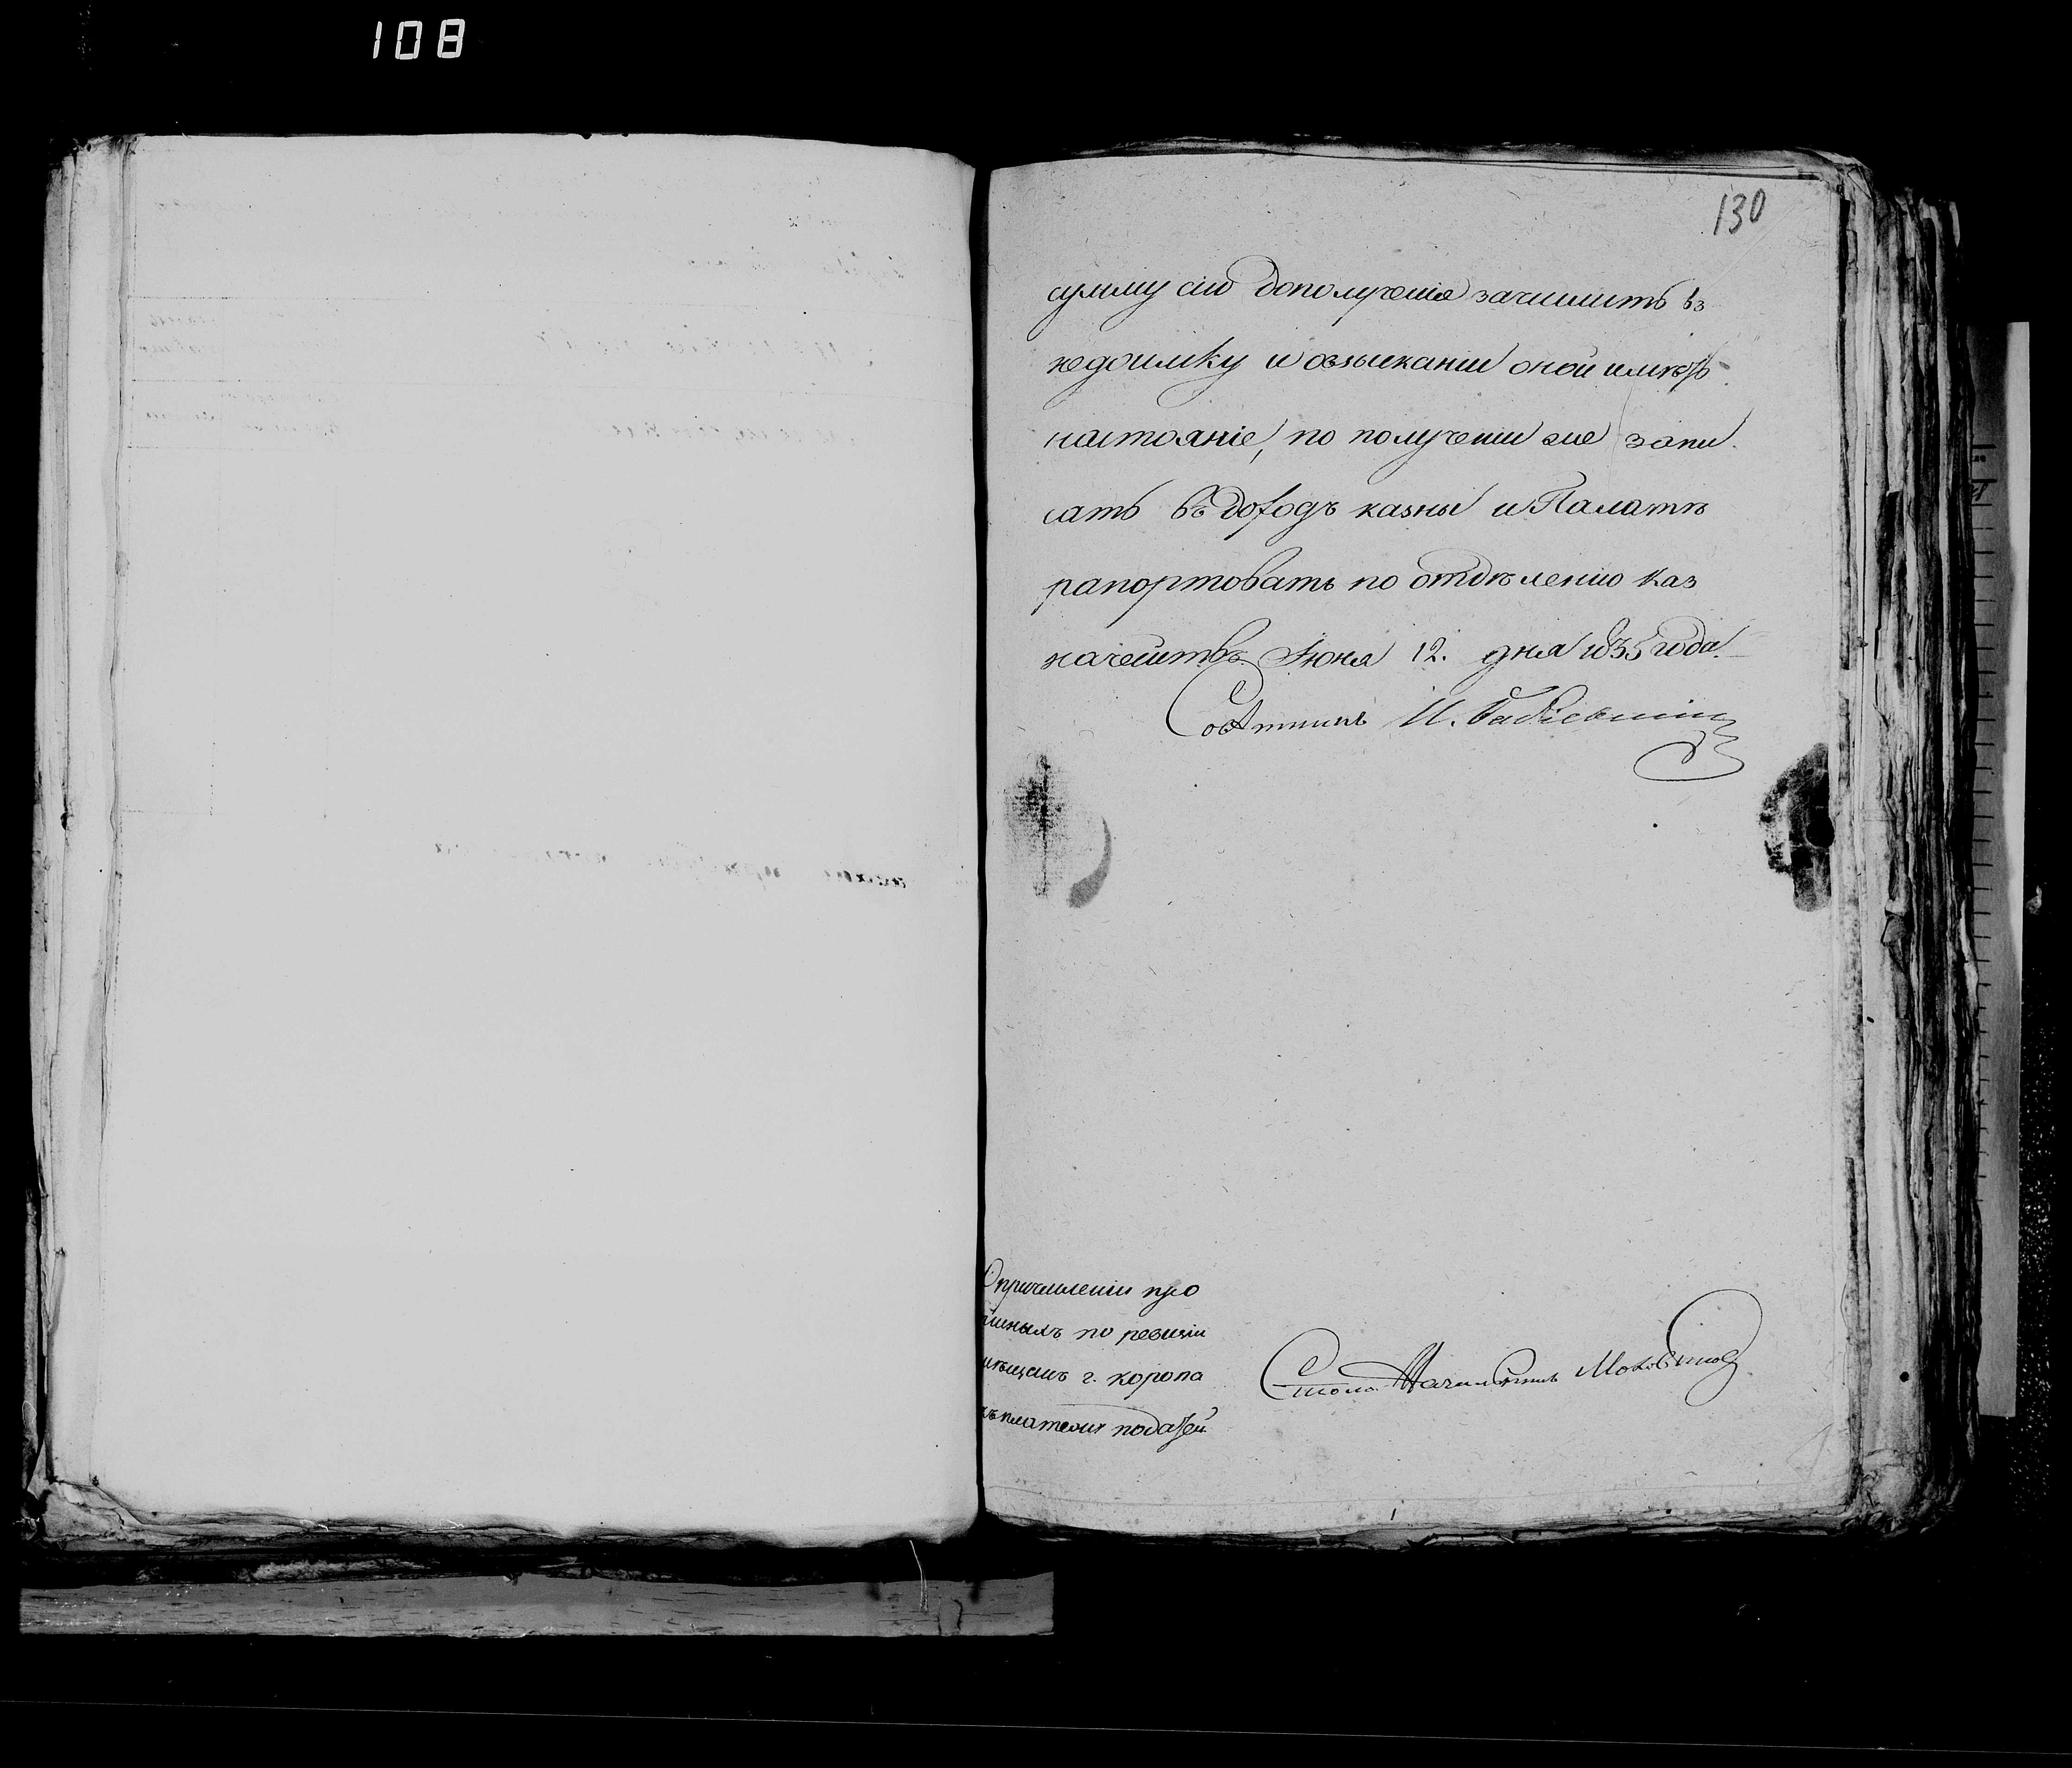 108
130
сумму сію дополученія зачислить въ
недоимку и овзысканіи оной имѣть
настояніе, по полученіи же запи
сать въ доходъ казны и Палатѣ
рапортовать по отдѣленію каз
начействъ Іюня 12. дня 1835 года.
Совѣтникъ И.
Опричисленіи про
писныхъ по ревизіи
мѣщанъ г. Коропа
къ платежу податей
Столоначальникъ